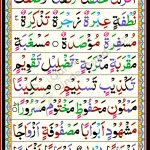 نُطْفَةٍ عِبْرَةً زَجْرَةٌ تَذْكِرَةٌ
مُسْفِرَةٌ مُؤْصَدَةٌ مَسْغَبَةٍ
مَقْرَبَةٍ مَتْرَبَةٍ تَضْلِيلٍ تَقْوِيمٍ
تَكْذِيبٍ تَسْنِيمٍ مِسْكِينًا
مَمْنُونٍ مَحْفُوظٍ مَخْتُومٍ مَسْرُورًا
مَشْهُودٍ أَبْوَابًا مَصْفُوفَةٌ أَزْوَاجًا